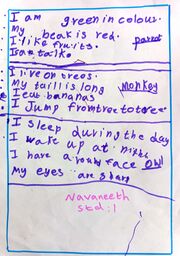 I am green in colour.
My beak is red.
I like fruits. parrot
I can talk.
I live on trees.
My tail is long Monkey
I eat bananas
I Jump from tree to tree
I sleep during the day
I wake up at night
I have a round face Owl
My eyes are sharp
Navaneeth
std: 1